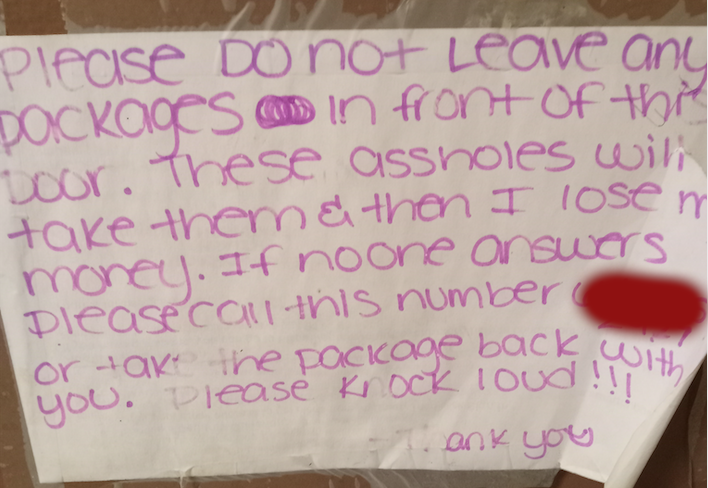 Please DO not Leave any
packages in front of this
Door. These assholes will
take them & then I lose m
money. If no one answers
please call this number (
or take the package back with
you. Please knock loud!!!
ank you